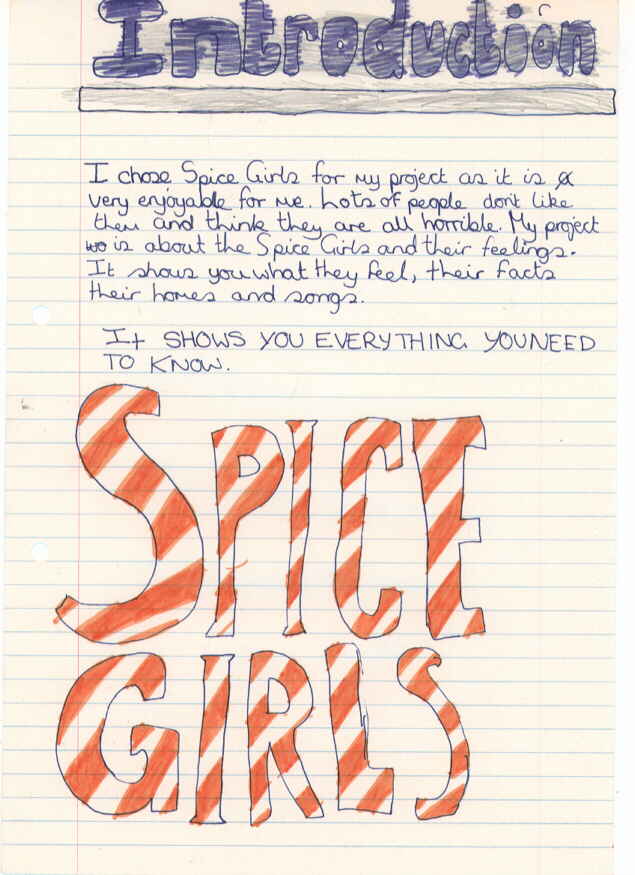 Introduction
I chose Spice Girls for my project as it is
very enjoyable for me. Lots of people don't like
them and think they are all horrible. My project
is about the Spice Girls and their feelings.
It shows you what they feel, their facts
their homes and songs.
It SHOWS YOU EVERYTHING YOU NEED
TO KNOW.
SPICE
GIRLS